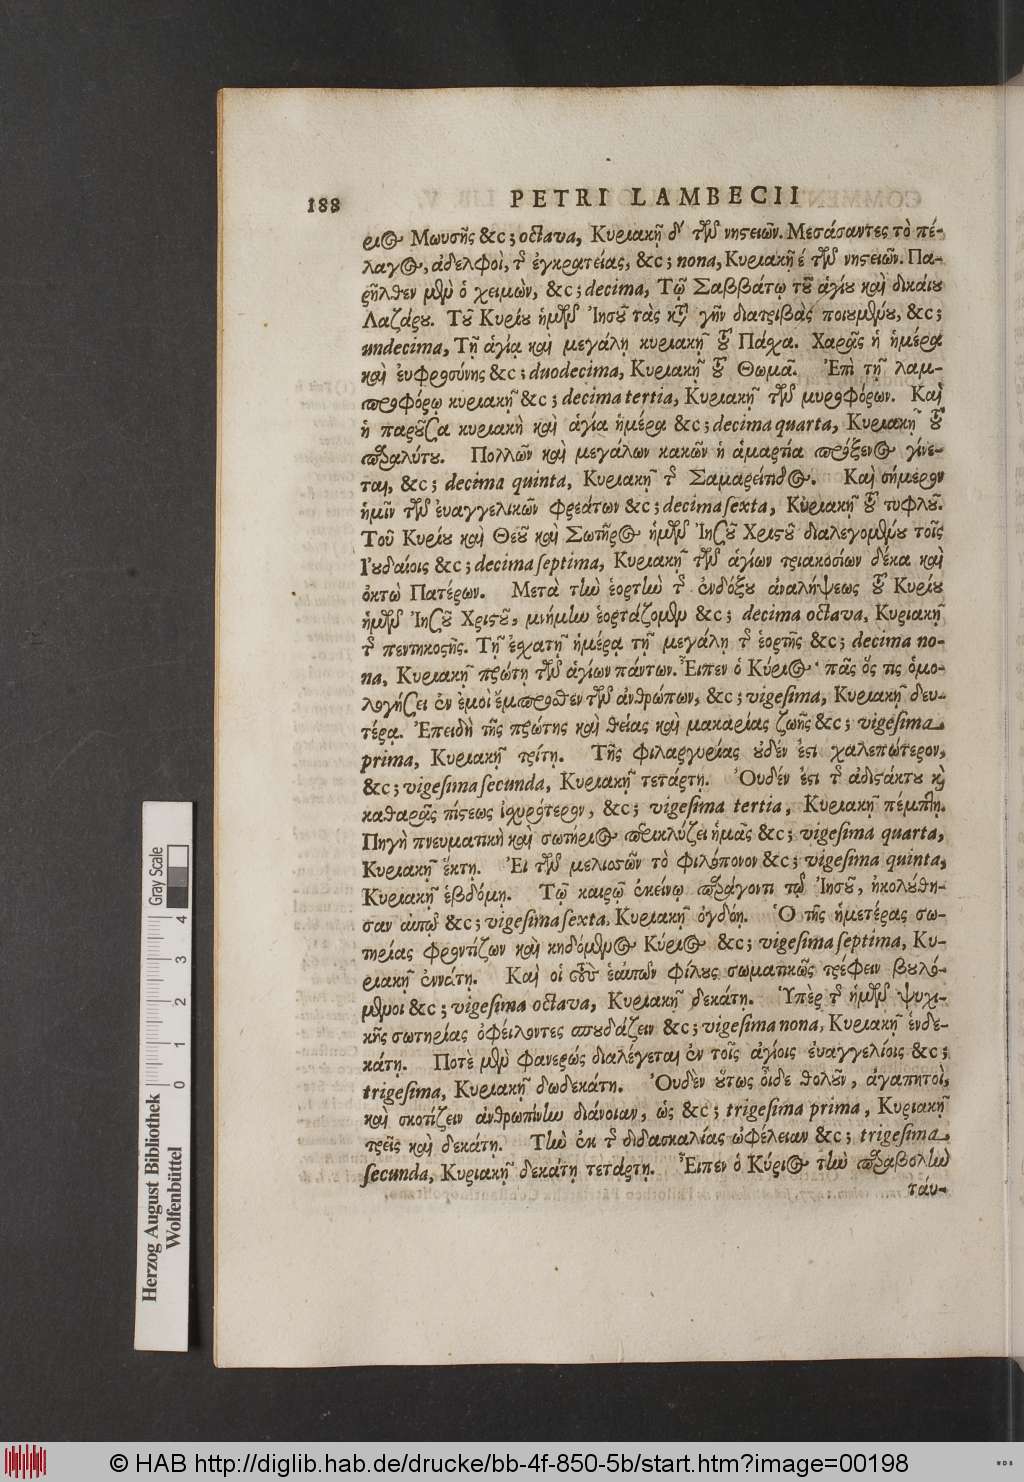 188 PETRI LAMBECII
ριος Μωυσῆς &c; octava, Κυριακῇ δ' τῶν νηστειῶν. Μεσάσαντες τὸ πέ-
λαγος, ἀδελφοὶ, τῆς ἐγκρατείας, &c; nona, Κυριακῇ έ τῶν νηστειῶν. Πα-
ρῆλθεν μὲν ὁ χειμὼν, &c; decima, Τῷ Σαββάτῳ τοῦ ἁγίου καὶ δικαίου
Λαζάρου. Τοῦ Κυρίου ἡμῶν Ἰησοῦ τὰς κατὰ γῆν διατριβὰς ποιουμένου, &c;
undecima, Τῇ ἁγίᾳ καὶ μεγάλῃ κυριακῇ τοῦ Πάσχα. Χαρᾶς ἡ ἡμέρα
καὶ ἐυφροσύνης &c; duodecima, Κυριακῇ τοῦ Θωμᾶ. Ἐπὶ τῇ λαμ-
προφόρῳ κυριακῇ &c; decima tertia, Κυριακῇ τῶν μυροφόρων. Καὶ
ἡ παροῦσα κυριακὴ καὶ ἁγία ἡμέρα &c; decima quarta, Κυριακῇ τοῦ
παραλύτου. Πολλῶν καὶ μεγάλων κακῶν ἡ ἁμαρτία πρόξενος γίνε-
ται, &c; decima quinta, Κυριακῇ τῆς Σαμαρείτιδος. Καὶ σήμερον
ἡμῖν τῶν ἐυαγγελικῶν φρεάτων &c; decima sexta, Κυριακῇ τοῦ τυφλοῦ.
Τοῦ Κυρίου καὶ Θεοῦ καὶ Σωτῆρος ἡμῶν Ἰησοῦ Χριστοῦ διαλεγομένου τοῖς
Ἰουδαίοις &c; decima septima, Κυριακῇ τῶν ἁγίων τριακοσίων δέκα καὶ
ὀκτὼ Πατέρων. Μετὰ τὴν ἑορτὴν τῆς ἐνδόξου ἀναλήψεως τοῦ Κυρίου
ἡμῶν Ἰησοῦ Χριστοῦ, μνήμην ἑορτάζομεν &c; decima octava, Κυριακῇ
τῆς πεντηκοστῆς. Τῇ ἐσχατῇ ἡμέρᾳ τῇ μεγάλῃ τῆς ἑορτῆς &c; decima no-
na, Κυριακῇ πρώτῃ τῶν ἁγίων πάντων. Ἔιπεν ὁ Κύριος· πᾶς ὅς τις ὁμο-
λογήσει ἐν ἐμοὶ ἔμπροσθεν τῶν ἀνθρώπων, &c; vigesima, Κυριακῇ δευ-
τέρᾳ. Ἐπειδὴ τῆς πρώτης καὶ θείας καὶ μακαρίας ζωῆς &c; vigesima
prima, Κυριακῇ τρίτῃ. Τῆς φιλαργυρίας οὐδέν ἐστι χαλεπώτερον,
&c; vigesima secunda, Κυριακῇ τετάρτῃ. Ὀυδέν ἐστι τῆς ἀδιστάκτου καὶ
καθαρᾶς πίστεως ἰσχυρότερον, &c; vigesima tertia, Κυριακῇ πέμπτῃ.
Πηγὴ πνευματικὴ καὶ σωτήριος περικλύζει ἡμᾶς &c; vigesima quarta,
Κυριακῇ ἕκτῃ. Ἐι τῶν μελισσῶν τὸ φιλόπονον &c; vigesima quinta,
Κυριακῇ ἑβδόμῃ. Τῷ καιρῷ ἐκείνῳ παράγοντι τῷ Ἰησοῦ, ἠκολούθη-
σαν ἀυτῷ &c; vigesima sexta, Κυριακῇ ὀγδόῃ. Ὁ τῆς ἡμετέρας σω-
τηρίας φροντίζων καὶ κηδόμενος Κύριος &c; vigesima septima, Κυ-
ριακῇ ἐννάτῃ. Καὶ οἱ τοὺς ἑαυτῶν φίλους σωματικῶς τρέφειν βουλό-
μενοι &c; vigesima octava, Κυριακῇ δεκάτῃ. Ὑπὲρ τῆς ἡμῶν ψυχι-
κῆς σωτηρίας ὀφείλοντες σπουδάζειν &c; vigesima nona, Κυριακῇ ἑνδε-
κάτῃ. Ποτὲ μὲν φανερώς διαλέγεται ἐν τοῖς ἁγίοις ἐυαγγελίοις &c;
trigesima, Κυριακῇ δωδεκάτῃ. Ὀυδὲν οὕτως οἶδε θολοῦν, ἀγαπητοὶ,
καὶ σκοτίζειν ἀνθρωπίνην διάνοιαν, ὡς &c; trigesima prima, Κυριακῇ
τρεῖς καὶ δεκάτῃ. Τὴν ἐκ τῆς διδασκαλίας ὠφέλειαν &c; trigesima
secunda, Κυριακῇ δεκάτῃ τετάρτῃ. Ἔιπεν ὁ Κύριος τὴν παραβολὴν
τάυ-
Herzog August Bibliothek
Wolfenbüttel
Gray Scale
0 1 2 3 4
© HAB http://diglib.hab.de/drucke/bb-4f-850-5b/start.htm?image=00198